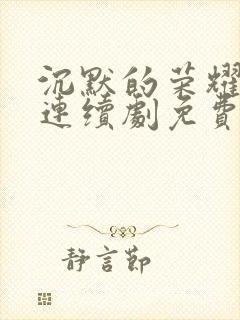 沉默的荣耀
連續劇免費
靜言節